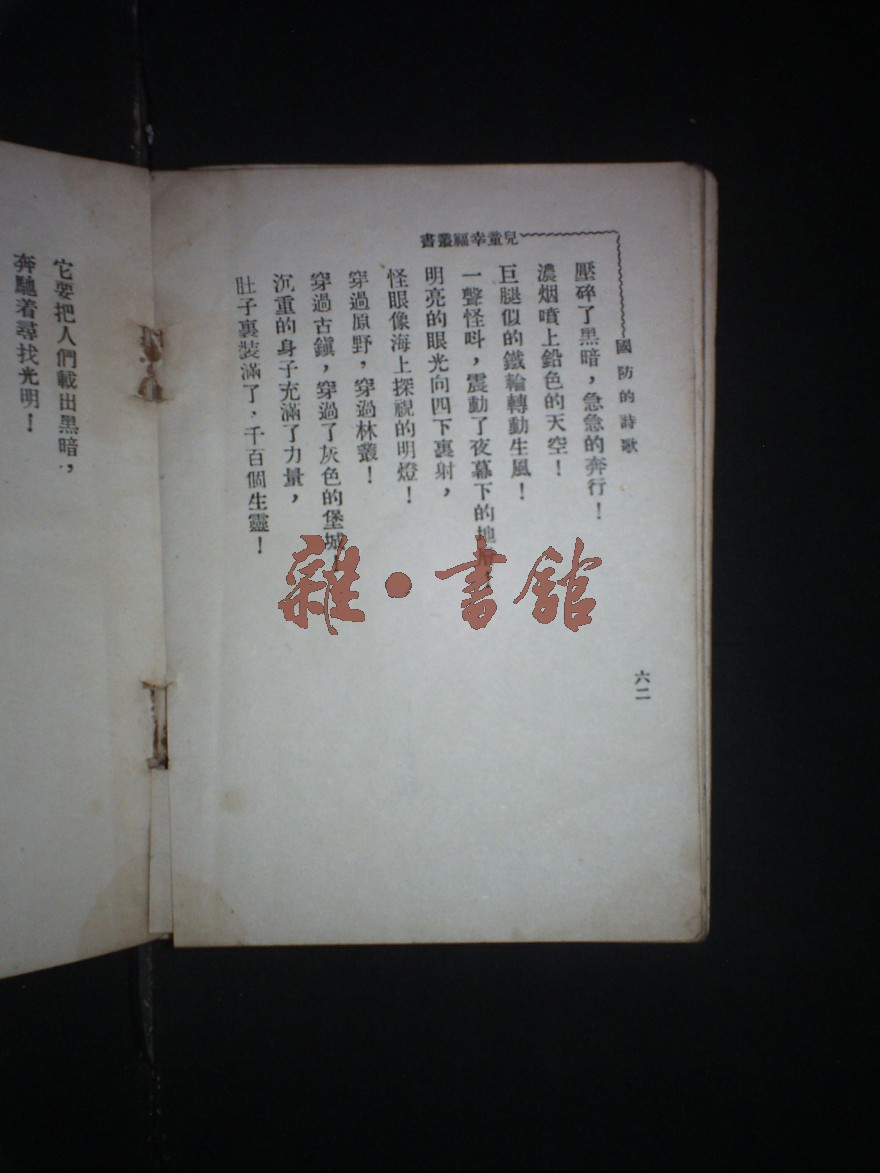 兒童幸福叢書
國防的詩歌
六二
壓碎了黑暗，急急的奔行！
濃烟噴上鉛色的天空！
巨腿似的鐵輪轉動生風！
一聲怪呌，震動了夜幕下的地
明亮的眼光向四下裏射，
怪眼像海上探視的明燈！
穿過原野，穿過林叢！
穿過古鎭，穿過了灰色的堡城！
沉重的身子充滿了力量，
肚子裏裝滿了，千百個生靈！
它要把人們載出黑暗，
奔馳着尋找光明！
雜·書館